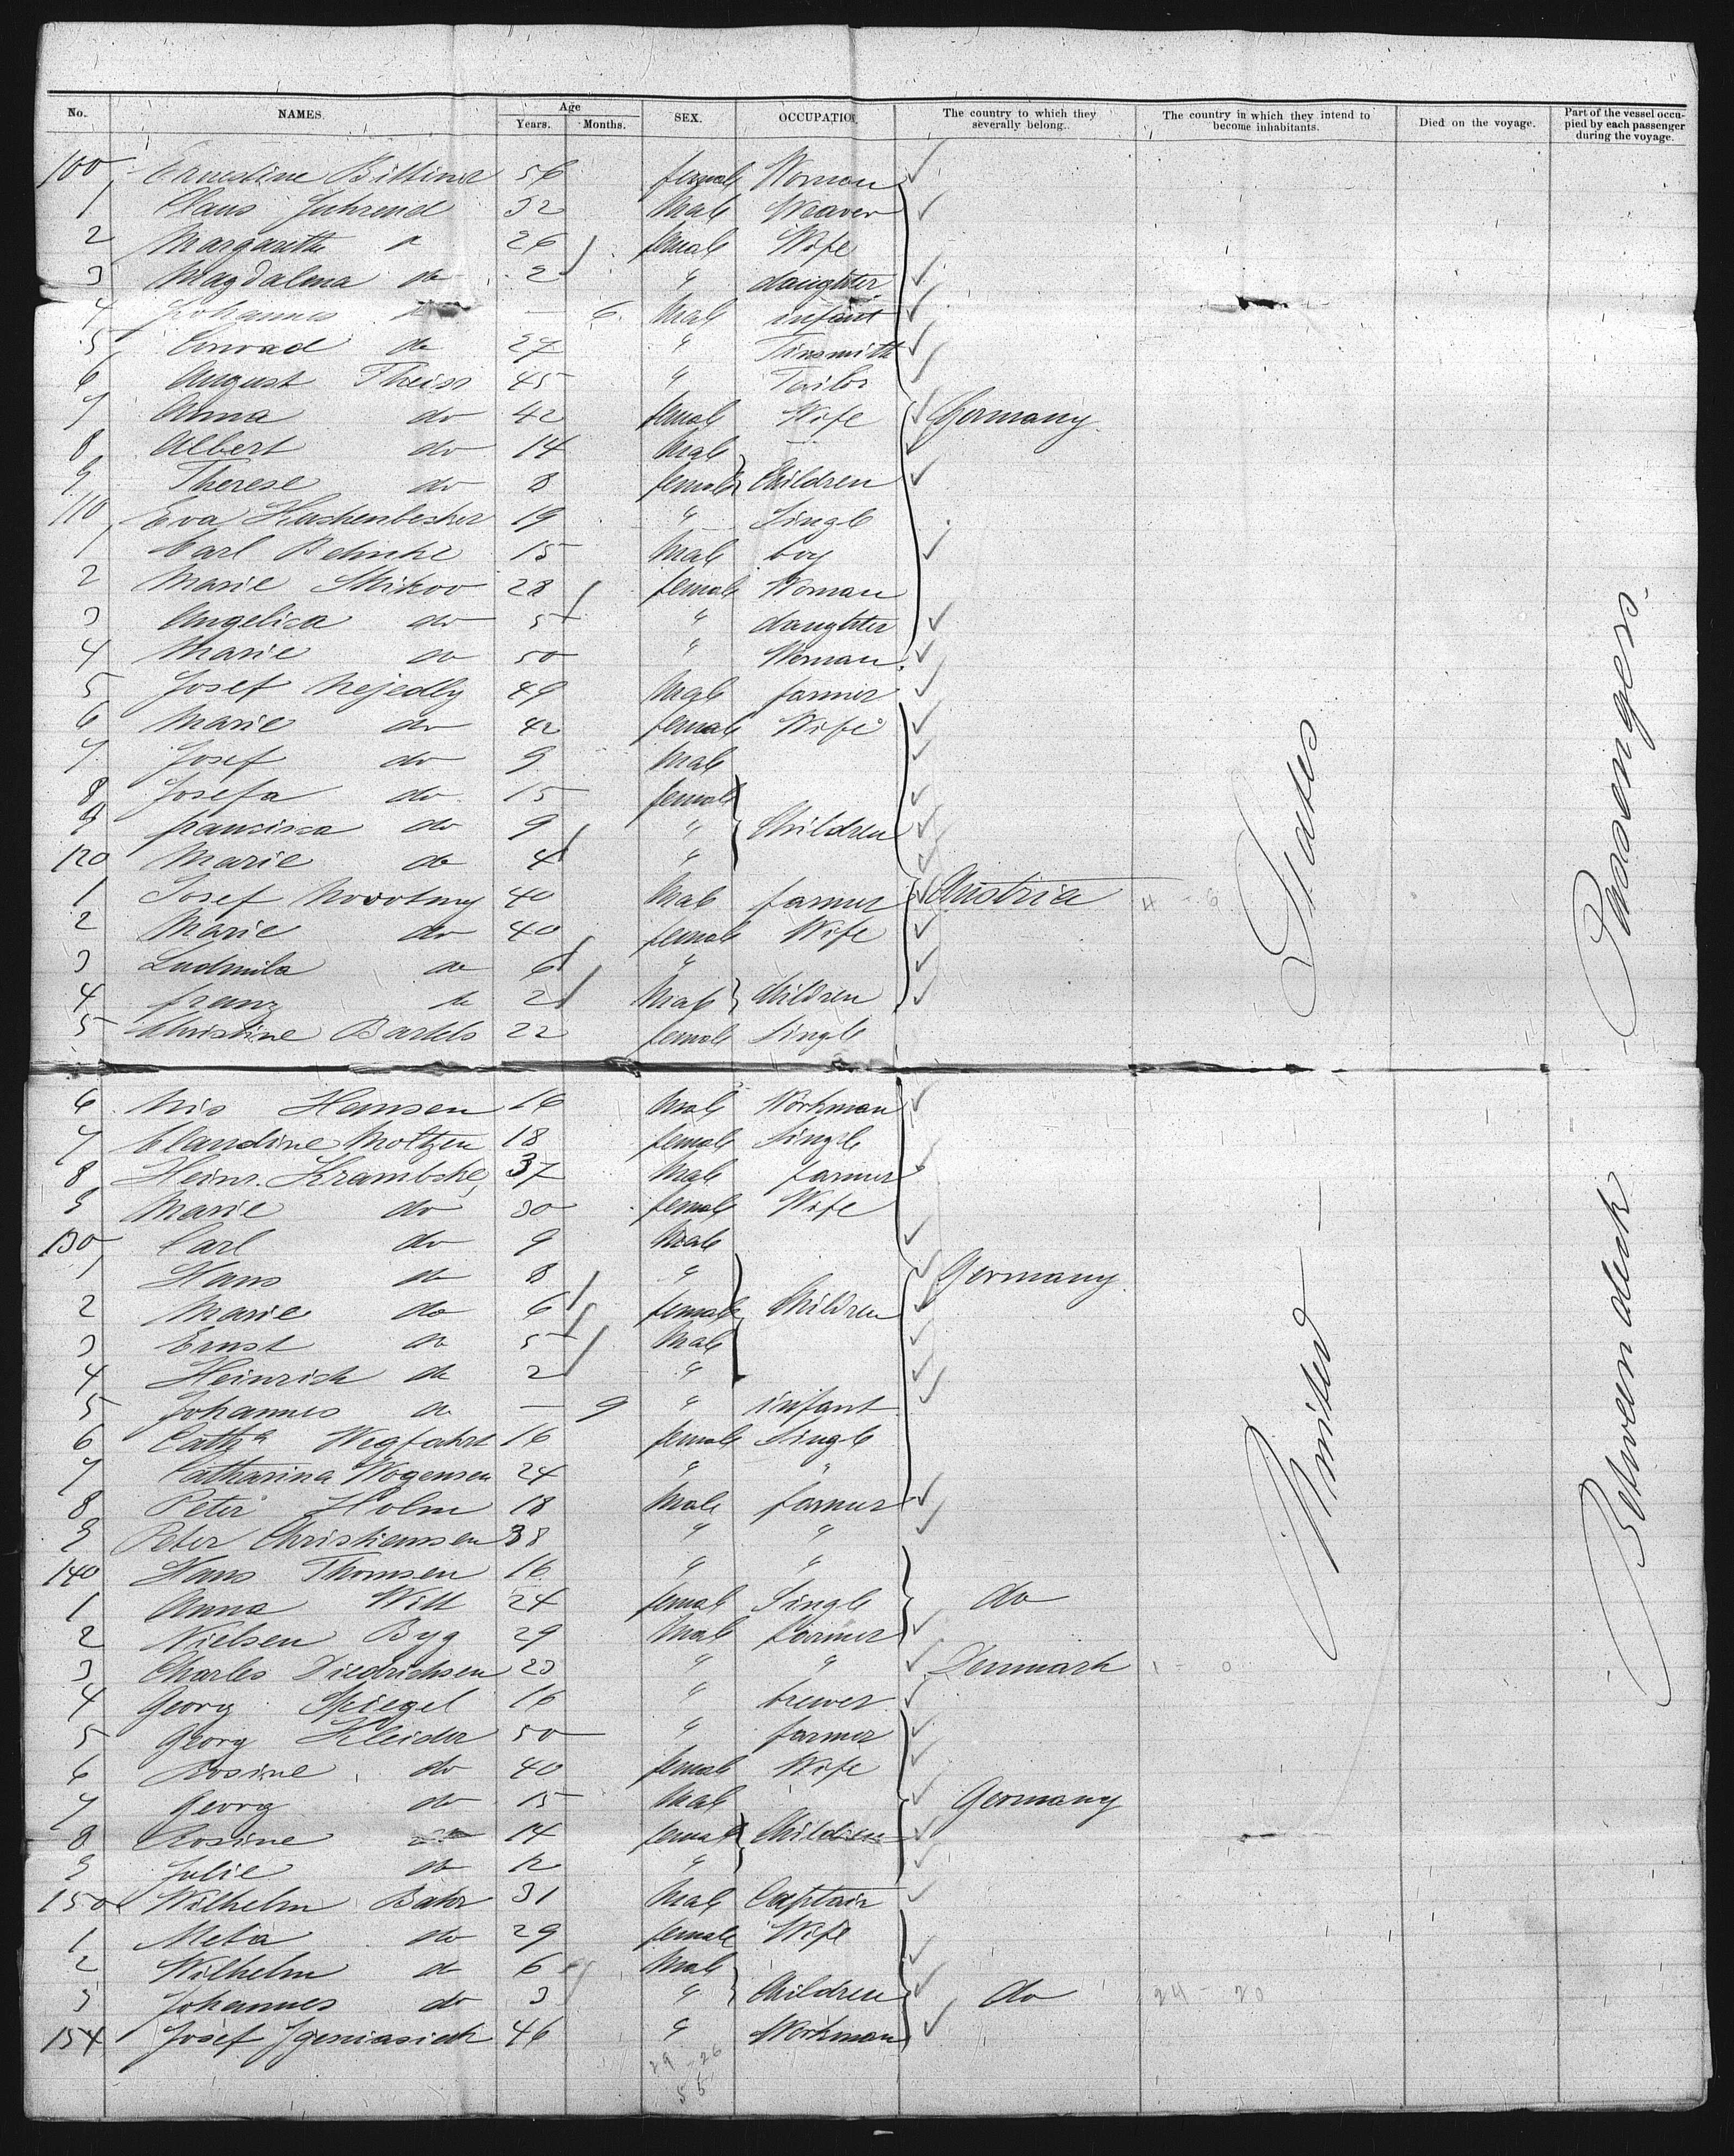 No. NAMES. Age Years. Months. SEX. OCCUPATION The country to which they severally belong. The country in which they intend to become inhabitants. Died on the voyage. Part of the vessel occupied by each passenger during the voyage.
100 Ernestine Bittiner 56 female Woman
1 Claus Juhrend 32 Male Weaver
2 Margareth " 26 female Wife
3 Magdalena do 2 " daughter
4 Johannes do — 6 Male infant
5 Conrad do 27 " Tinsmith
6 August Theiss 45 " Tailor
7 Anna do 42 female Wife Germany.
8 Albert do 14 Male
9 Therese do 8 female Children
110 Eva 19 " Single
1 Carl Behnke 15 Male boy
2 Marie 28 female Woman
3 Angelica do 5 " daughter
4 Marie do 50 " Woman
5 Josef Nejedly 49 Male farmer
6 Marie do 42 female Wife
7 Josef do 9 Male
8 Josefa do 15 female
9 francisca do 9 " Children
120 Marie do 4 "
1 Josef Novotny 40 Male farmer Austria 4 - 6
2 Marie do 40 female Wife
3 Ludmila do 6 "
4 franz do 2 Male Children
5 Christine Bartels 22 female Single
6 Nis Hansen 16 Male Workman
7 Claudine Moltzen 18 female Single
8 Heinr. Krambske 37 Male farmer
9 Marie do 30 female Wife
130 Carl do 9 Male
1 Hans do 8 " Germany.
2 Marie do 6 female Children
3 Ernst do 5 Male
4 Heinrich do 2 "
5 Johannes do — 9 " infant
6 Cath^a Wegfahrt 16 female Single
7 Catharina Wogensen 24 " "
8 Peter Holm 18 Male farmer
9 Peter Christiansen 38 " "
140 Hans Thomsen 16 " "
1 Anna Witt 24 female Single do
2 Nielsen Byg 29 Male farmer
3 Charles Diedrichsen 23 " " Denmark 1 - 0
4 Georg Spiegel 16 " brewer
5 Georg Kleider 50 " farmer
6 Rosine do 40 female Wife
7 Georg do 15 Male Germany
8 Rosine do 14 female Children
9 Julie do 12 "
150 Wilhelm Bahr 31 Male Captain
1 Meta do 29 female Wife
2 Wilhelm do 6 Male
3 Johannes do 3 " Children do 24 - 20
154 Josef 46 " Workman
29 - 26
55
United States
Between deck Passengers.